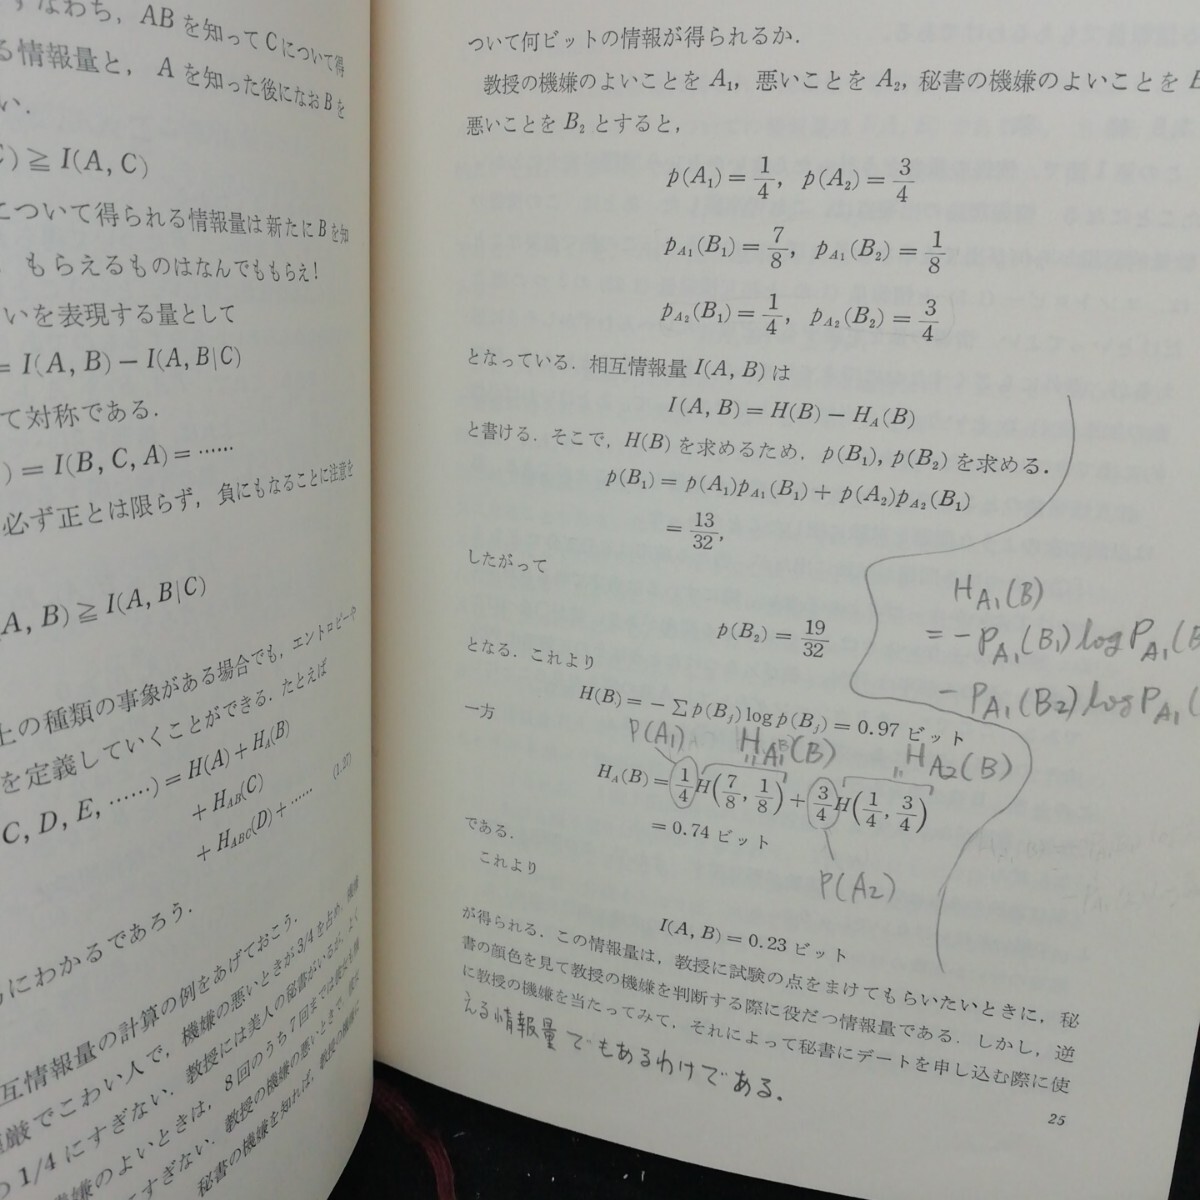 すなわち，AB を知って C について得
る情報量と，A を知った後になお B を
い．
C) ≧ I(A, C)
について得られる情報量は新たに B を知
もらえるものはなんでももらえ！
いを表現する量として
= I(A, B) − I(A, B|C)
て対称である．
) = I(B, C, A) = ……
必ず正とは限らず，負にもなることに注意を
A, B) ≧ I(A, B|C)
上の種類の事象がある場合でも，エントロピーや
を定義していくことができる．たとえば
C, D, E, ……) = H(A) + H_A(B)
+ H_AB(C)
+ H_ABC(D) + ……　(1.27)
にわかるであろう．
互情報量の計算の例をあげておこう．
厳でこわい人で，機嫌の悪いときが 3/4 を占め，機嫌
1/4 にすぎない．教授には美人の秘書がいるが，よく
機嫌のよいときは，8 回のうち 7 回までは彼女も機
にすぎない．教授の機嫌の悪いときで，彼女
秘書の機嫌を知れば，教授の機嫌に
ついて何ビットの情報が得られるか．
教授の機嫌のよいことを A₁，悪いことを A₂，秘書の機嫌のよいことを B
悪いことを B₂ とすると，
p(A₁) = 1/4, p(A₂) = 3/4
p_A₁(B₁) = 7/8, p_A₁(B₂) = 1/8
p_A₂(B₁) = 1/4, p_A₂(B₂) = 3/4
となっている．相互情報量 I(A, B) は
I(A, B) = H(B) − H_A(B)
と書ける．そこで，H(B) を求めるため，p(B₁), p(B₂) を求める．
p(B₁) = p(A₁)p_A₁(B₁) + p(A₂)p_A₂(B₁)
= 13/32,
したがって
p(B₂) = 19/32
となる．これより
H(B) = − Σ p(B_j) log p(B_j) = 0.97 ビット
一方
H_A(B) = 1/4 H(7/8, 1/8) + 3/4 H(1/4, 3/4)
= 0.74 ビット
である．
これより
I(A, B) = 0.23 ビット
が得られる．この情報量は，教授に試験の点をまけてもらいたいときに，秘
書の顔色を見て教授の機嫌を判断する際に役だつ情報量である．しかし，逆
に教授の機嫌を当たってみて，それによって秘書にデートを申し込む際に使
える情報量でもあるわけである．
25
H_A₁(B)
= − P_A₁(B₁) log P_A₁(B
− P_A₁(B₂) log P_A₁(
P(A₁)
H_A₁(B)
H_A₂(B)
P(A₂)